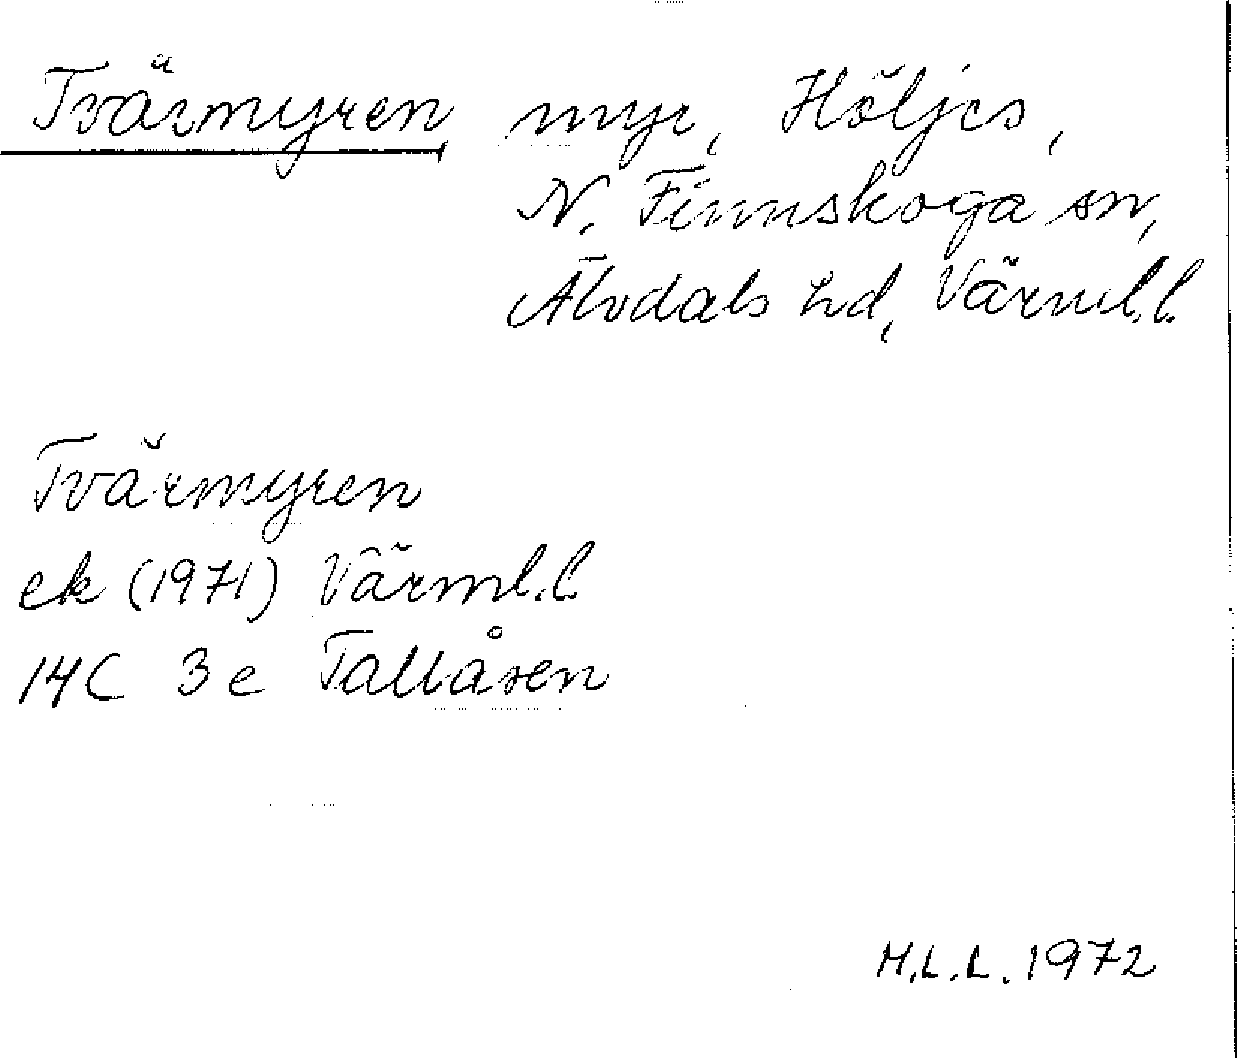 Tvärmyren myr, Höljes,
N. Finnskoga sn,
Älvdals hd, Värml.l.
Tvärmyren
ek (1971) Värml.l.
14C 3e Tallåsen
M.L.L. 1972